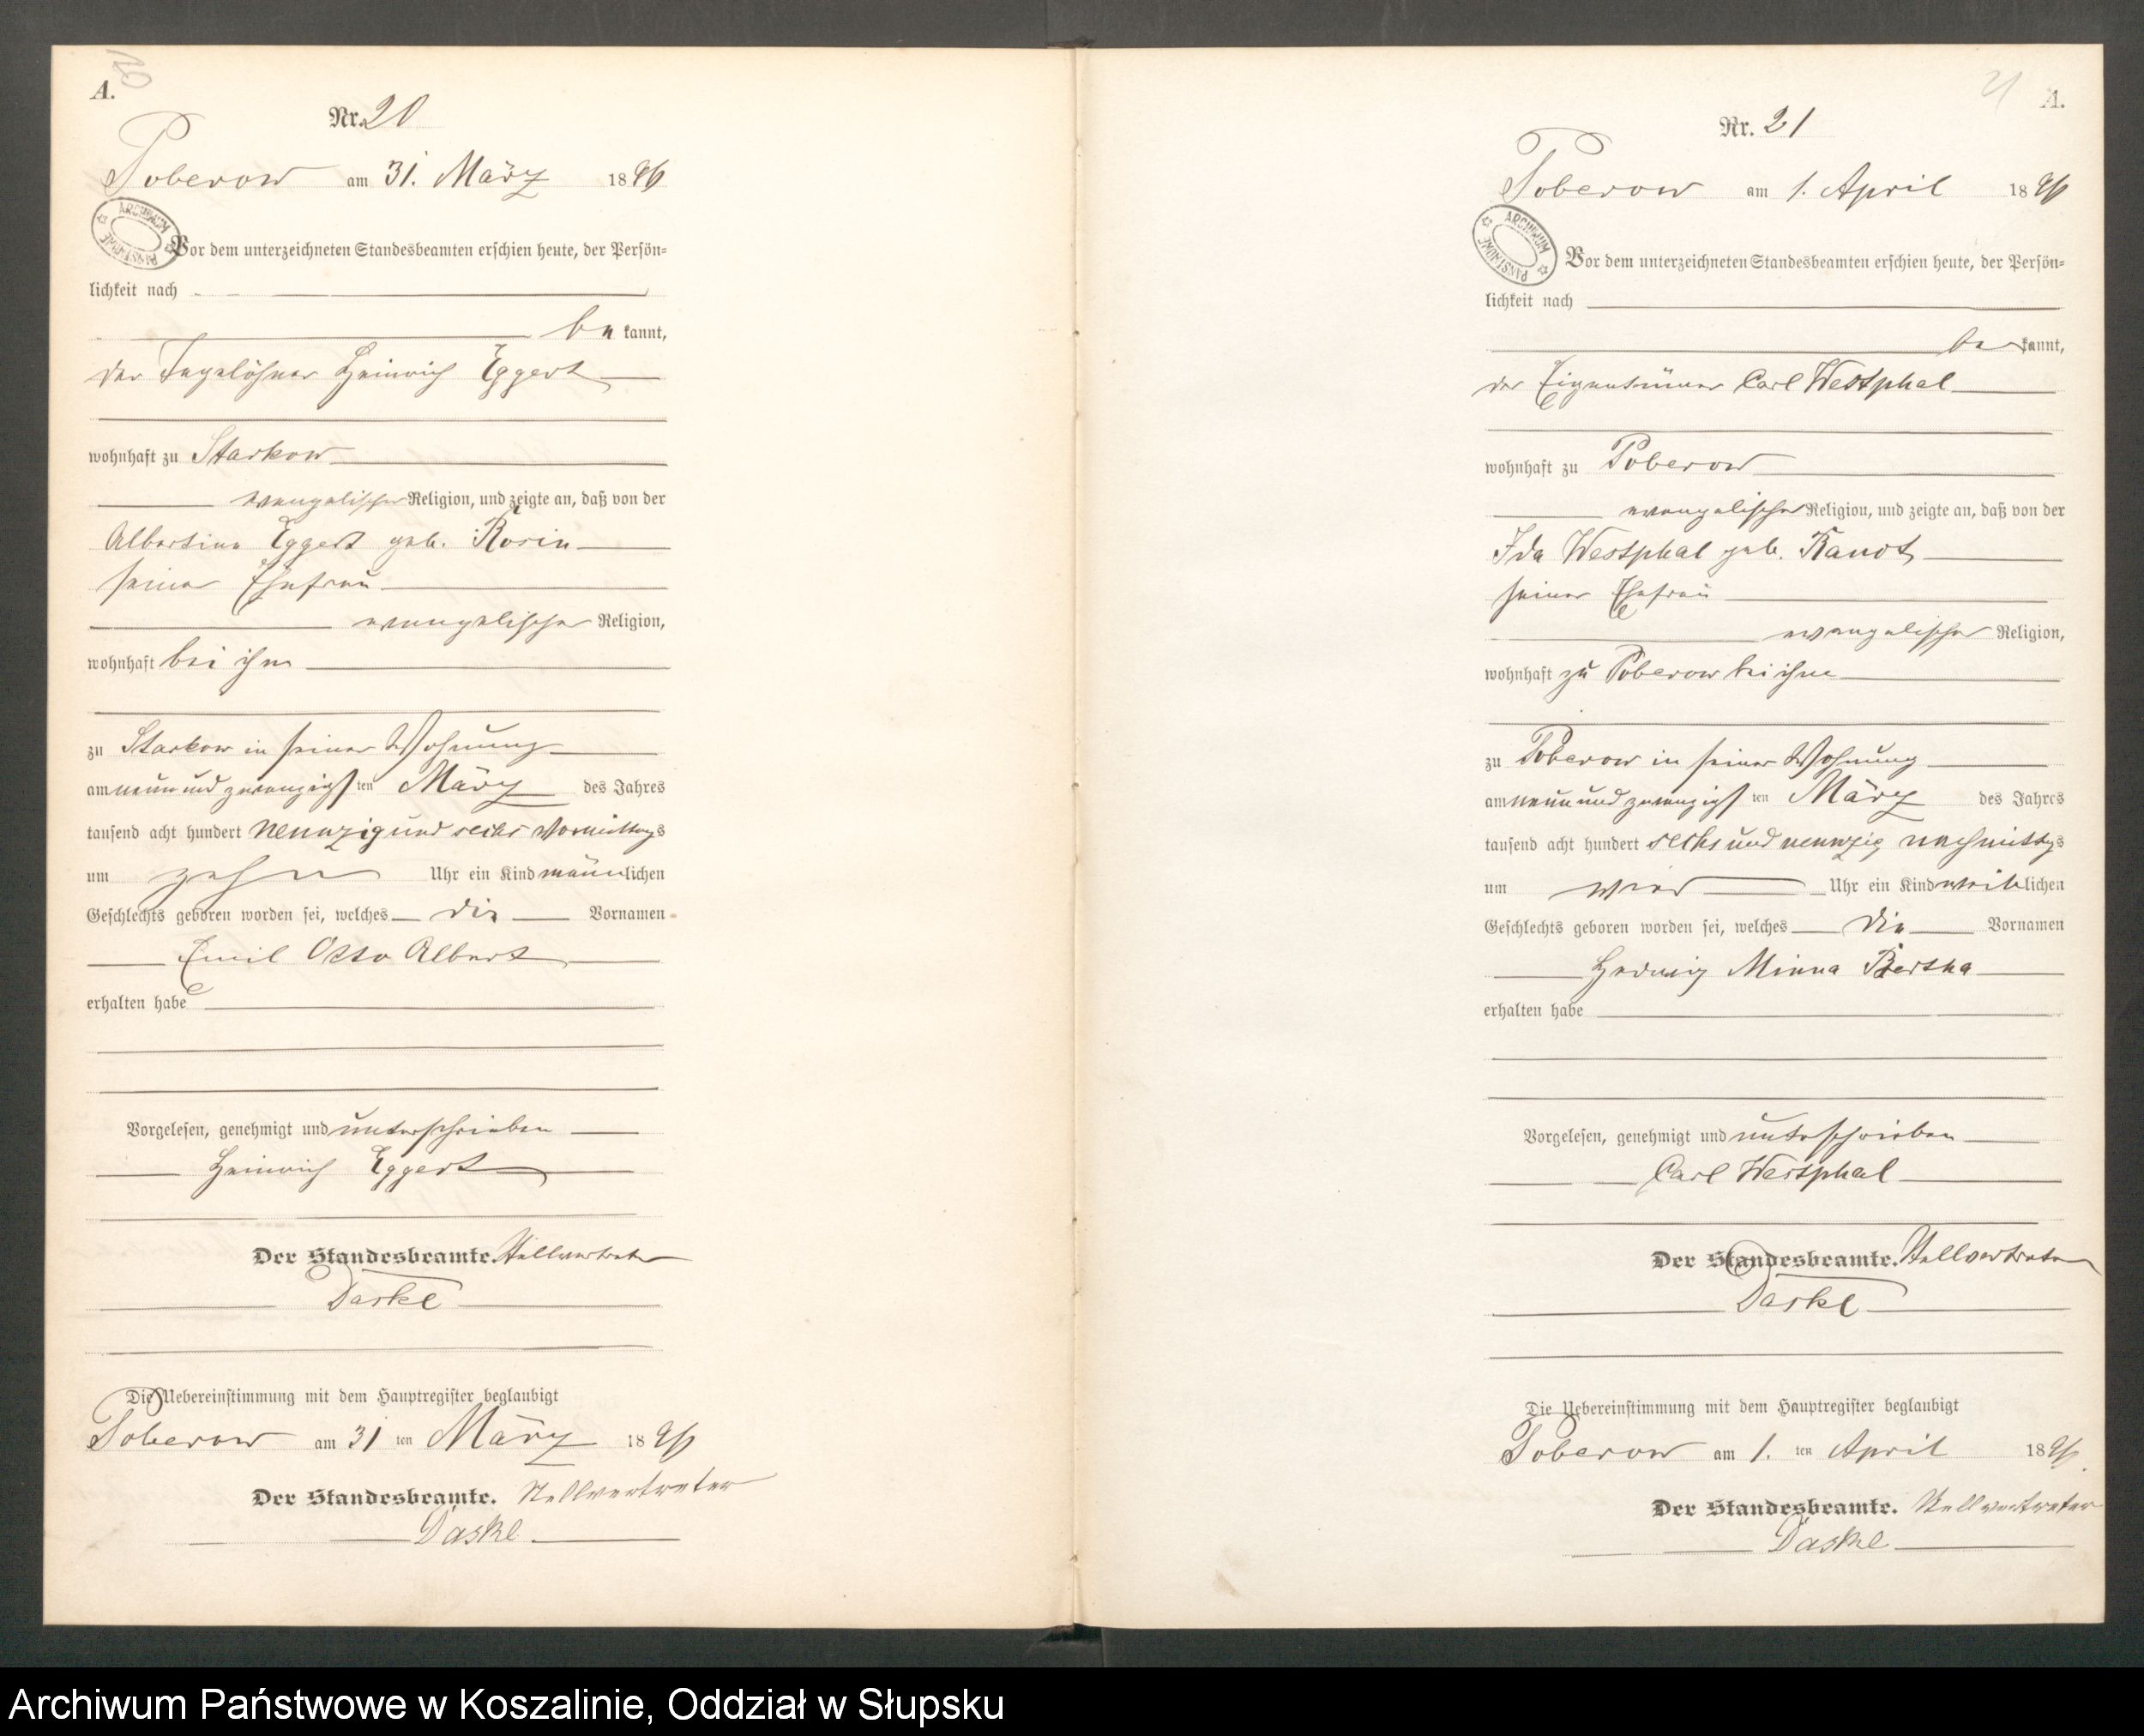 A.
20
Nr. 20
Poberow am 31. März 1896
ARCHIWUM PAŃSTWOWE
Vor dem unterzeichneten Standesbeamten erschien heute, der Persön=
lichkeit nach
be kannt,
der Tagelöhner Heinrich Eggert
wohnhaft zu Starkow
evangelischer Religion, und zeigte an, daß von der
Albertine Eggert geb. Rosin
seiner Ehefrau
evangelischer Religion,
wohnhaft bei ihm
zu Starkow in seiner Wohnung
am neun und zwanzigsten März des Jahres
tausend acht hundert neunzig und sechs Vormittags
um zehn Uhr ein Kind männlichen
Geschlechts geboren worden sei, welches die Vornamen
Emil Otto Albert
erhalten habe
Vorgelesen, genehmigt und unterschrieben
Heinrich Eggert
Der Standesbeamte. Stellvertreter
Daske
Die Uebereinstimmung mit dem Hauptregister beglaubigt
Poberow am 31 ten März 1896
Der Standesbeamte. Stellvertreter
Daske
21
A.
Nr. 21
Poberow am 1. April 1896
ARCHIWUM PAŃSTWOWE
Vor dem unterzeichneten Standesbeamten erschien heute, der Persön=
lichkeit nach
be kannt,
der Eigentümer Carl Westphal
wohnhaft zu Poberow
evangelischer Religion, und zeigte an, daß von der
Ida Westphal geb. Randt
seiner Ehefrau
evangelischer Religion,
wohnhaft zu Poberow bei ihm
zu Poberow in seiner Wohnung
am neun und zwanzigsten März des Jahres
tausend acht hundert sechs und neunzig nachmittags
um vier Uhr ein Kind weiblichen
Geschlechts geboren worden sei, welches die Vornamen
Hedwig Minna Bertha
erhalten habe
Vorgelesen, genehmigt und unterschrieben
Carl Westphal
Der Standesbeamte. Stellvertreter
Daske
Die Uebereinstimmung mit dem Hauptregister beglaubigt
Poberow am 1. ten April 1896.
Der Standesbeamte. Stellvertreter
Daske
Archiwum Państwowe w Koszalinie, Oddział w Słupsku